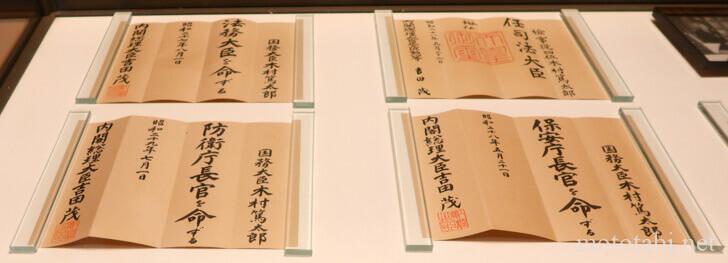 国務大臣木村篤太郎
法務大臣を命ずる
昭和二十七年八月一日
内閣総理大臣吉田茂
木村篤太郎
任司法大臣
吉田茂
国務大臣木村篤太郎
防衛庁長官を命ずる
昭和二十九年七月一日
内閣総理大臣吉田茂
国務大臣木村篤太郎
保安庁長官を命ずる
昭和二十八年五月二十一日
内閣総理大臣吉田茂
mototabi.net